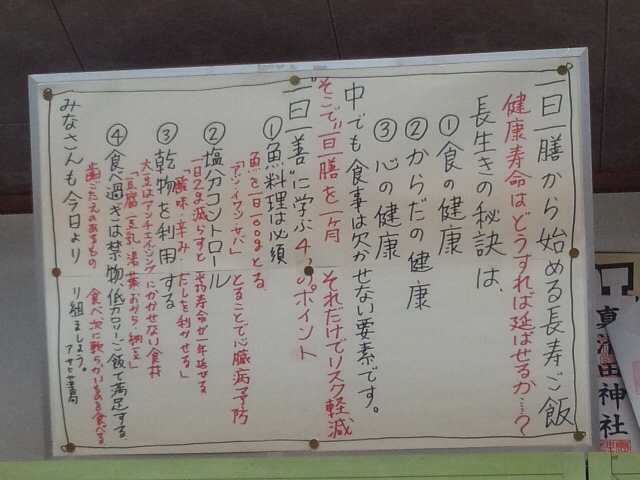 一日一膳から始める長寿ご飯
健康寿命はどうすれば延ばせるか…?
長生きの秘訣は、
①食の健康
②からだの健康
③心の健康
中でも食事は欠かせない要素です。
そこで"一日一膳を一ヶ月 それだけでリスク軽減
"一日一善"に学ぶ4つのポイント
①魚料理は必須
魚を一日100gとる
とることで心臓病予防
②塩分コントロール
一日2g減らすと 平均寿命が一年延びる
「酸味・辛み・だしを利かせる」
③乾物を利用する
大豆はアンチエイジングにかかせない食材
「豆腐・豆乳・湯葉・おから・納豆」
④食べ過ぎは禁物、低カロリーご飯で満足する
歯ごたえのあるもの 食べ、次に軟らかいものを食べる
みなさんも今日より り組ましょう。
真清田神社